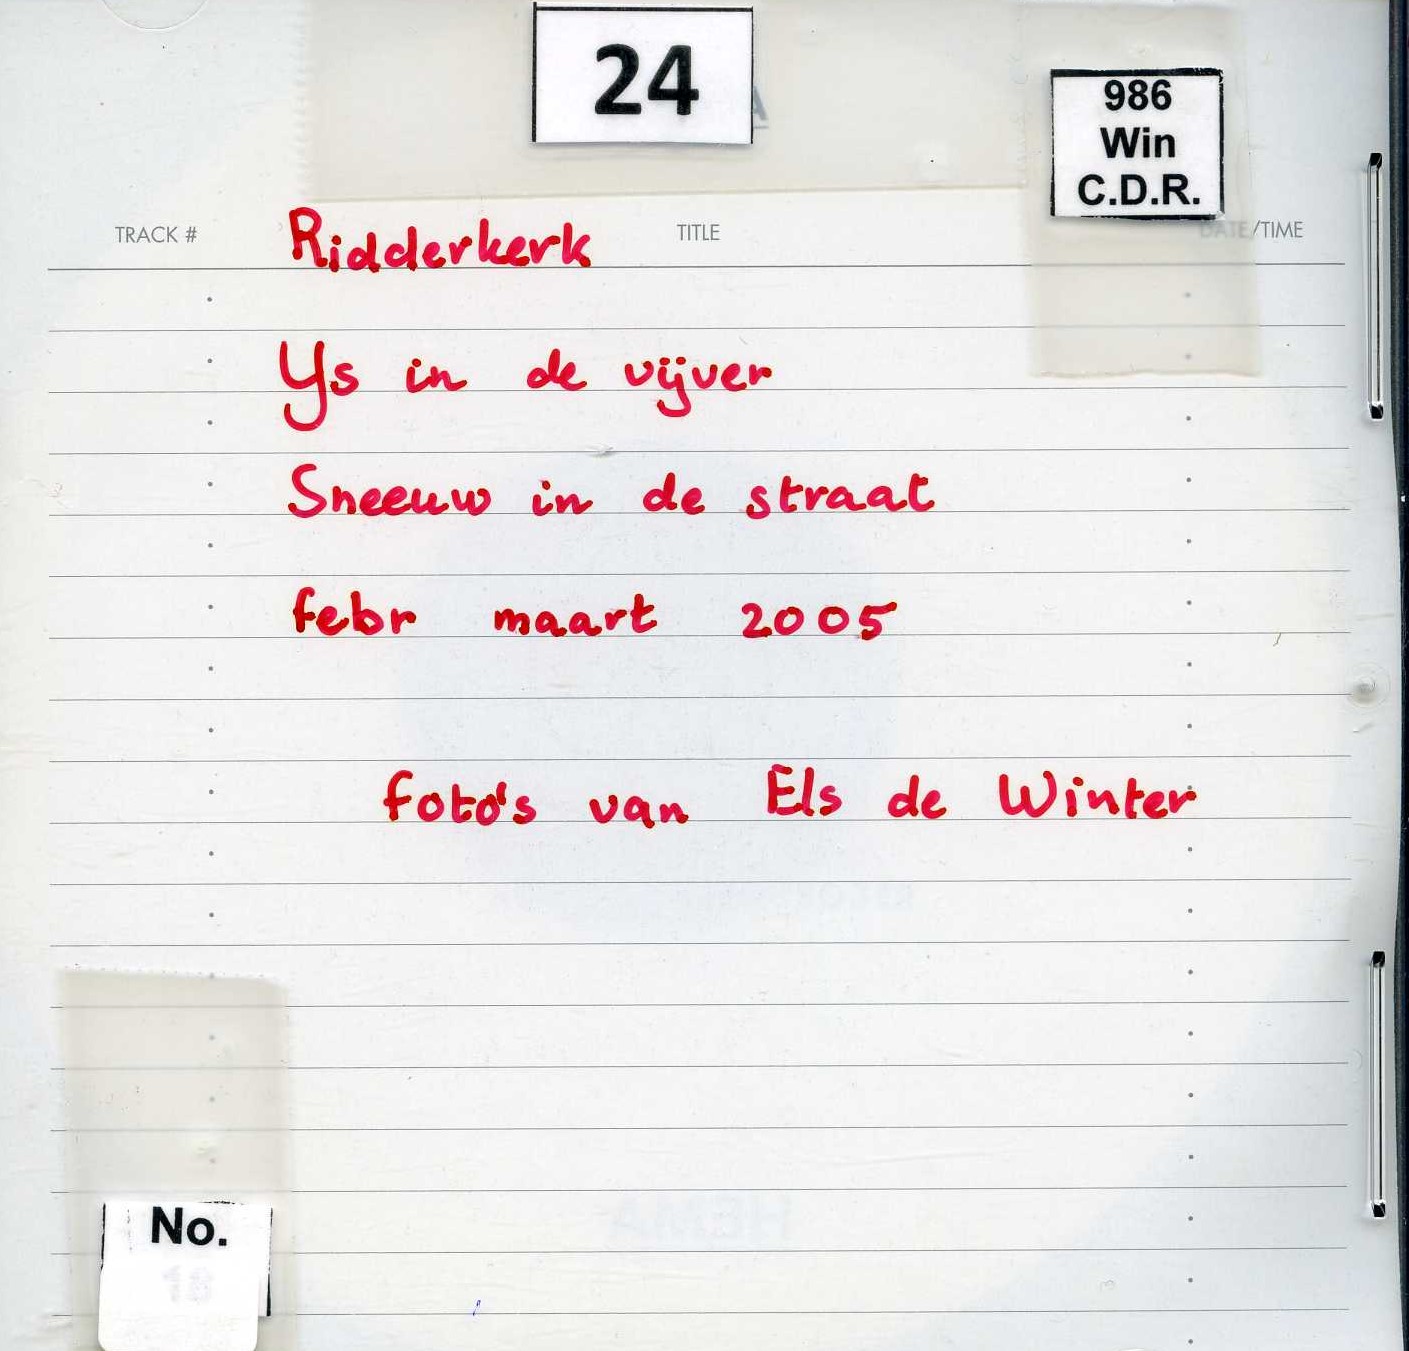 24
986
Win
C.D.R.
TRACK # TITLE DATE/TIME
Ridderkerk
Ys in de vijver
Sneeuw in de straat
febr maart 2005
foto's van Els de Winter
HEMA
No.